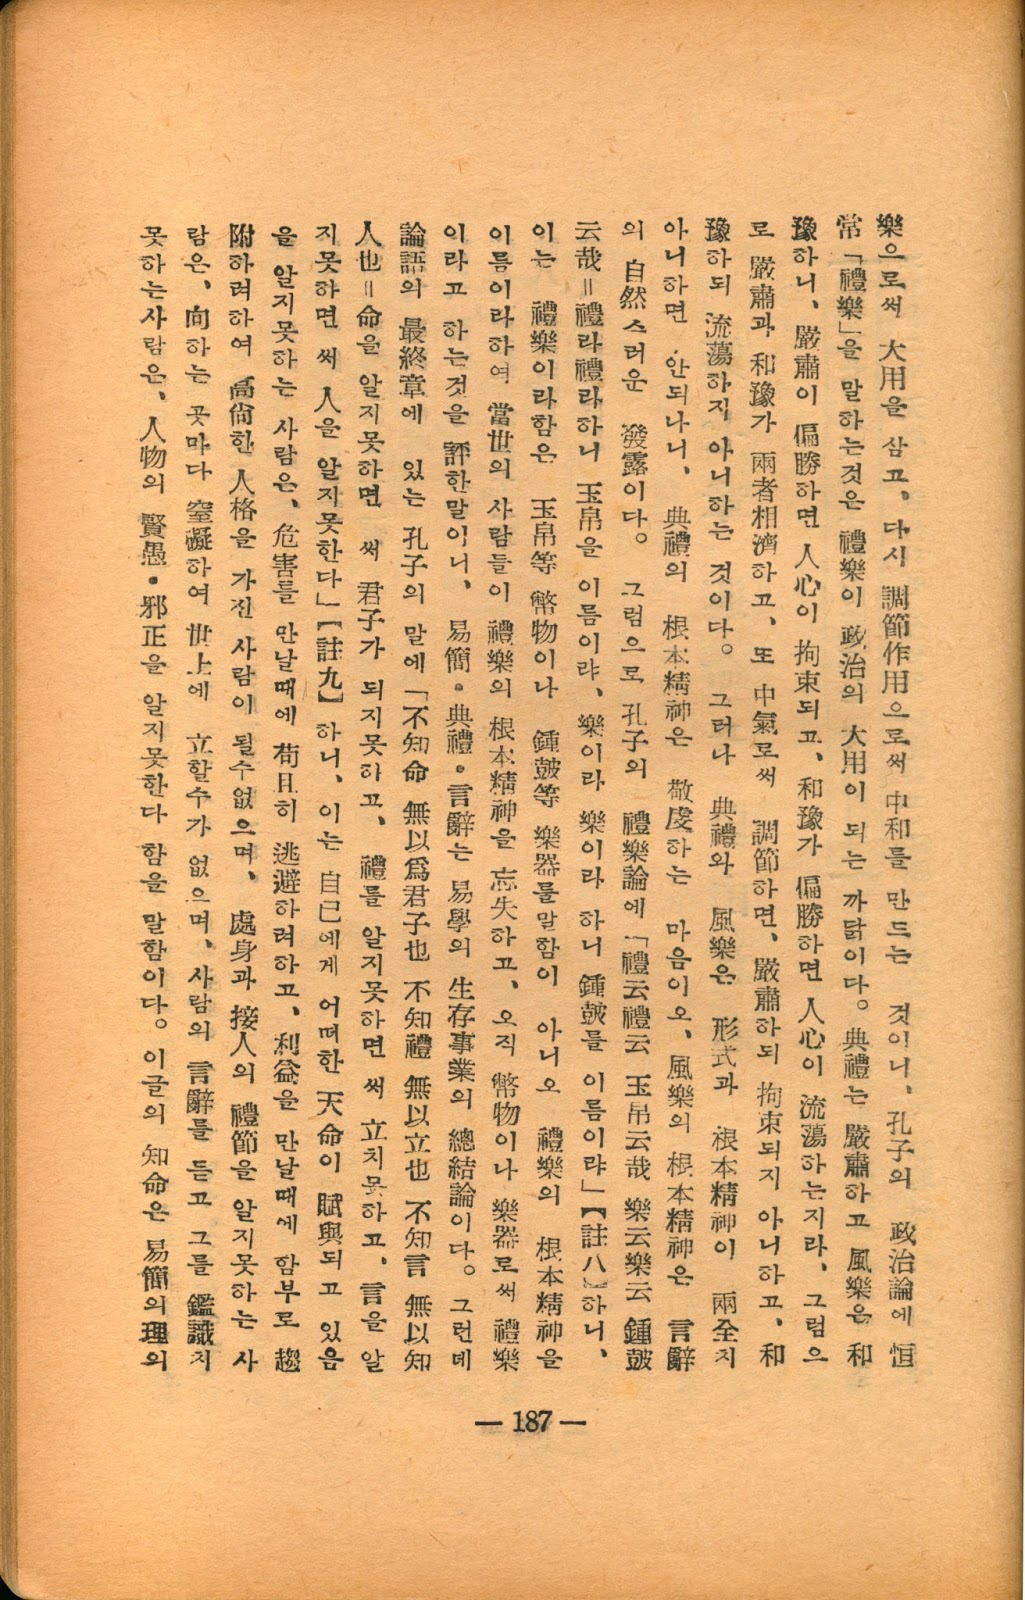 樂으로써 大用을 삼고、다시 調節作用으로써 中和를 만드는 것이니、孔子의 政治論에 恒
常「禮樂」을 말하는것은 禮樂이 政治의 大用이 되는 까닭이다。典禮는 嚴肅하고 風樂은 和
豫하니、嚴肅이 偏勝하면 人心이 拘束되고、和豫가 偏勝하면 人心이 流蕩하는지라、그럼으
로 嚴肅과 和豫가 兩者相濟하고、또 中氣로써 調節하면、嚴肅하되 拘束되지 아니하고、和
豫하되 流蕩하지 아니하는 것이다。그러나 典禮와 風樂은 形式과 根本精神이 兩全치
아니하면 안되나니、典禮의 根本精神은 敬虔하는 마음이오、風樂의 根本精神은 言辭
의 自然스러운 發露이다。그럼으로 孔子의 禮樂論에「禮云禮云 玉帛云哉 樂云樂云 鍾鼓
云哉=禮라禮라하니 玉帛을 이름이랴、樂이라 樂이라 하니 鍾鼓를 이름이랴」【註八】하니、
이는 禮樂이라함은 玉帛等 幣物이나 鍾鼓等 樂器를말함이 아니오 禮樂의 根本精神을
이름이라하여 當世의 사람들이 禮樂의 根本精神을 忘失하고、오직 幣物이나 樂器로써 禮樂
이라고 하는것을 評한말이니、易簡・典禮・言辭는 易學의 生存事業의 總結論이다。그런데
論語의 最終章에 있는 孔子의 말에「不知命 無以爲君子也 不知禮 無以立也 不知言 無以知
人也=命을 알지못하면 써 君子가 되지못하고、禮를 알지못하면 써 立치못하고、言을 알
지못하면 써 人을 알지못한다」【註九】하니、이는 自己에게 어떠한 天命이 賦與되고 있음
을 알지못하는 사람은、危害를 만날때에 苟且히 逃避하려하고、利益을 만날때에 함부로 趨
附하려하여 高尙한 人格을 가진 사람이 될수없으며、處身과 接人의 禮節을 알지못하는 사
람은、向하는 곳마다 窒礙하여 世上에 立할수가 없으며、사람의 言辭를 듣고 그를 鑑識치
못하는사람은、人物의 賢愚・邪正을 알지못한다 함을 말함이다。이글의 知命은 易簡의理의
— 187 —